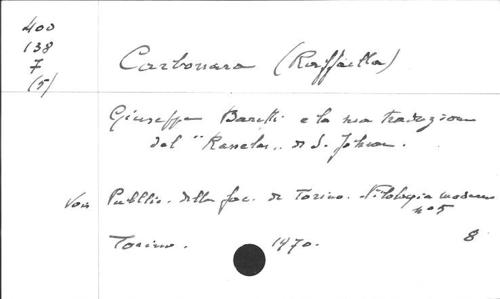 400
138
7
(5)
Carbonara (Raffaella)
Giuseppe Baretti e la sua traduzione
del "Rasselas" di S. Johnson.
Voir Pubblic. della fac. di Torino. Filologia moderna
n° 5
Torino. 1970. 8°